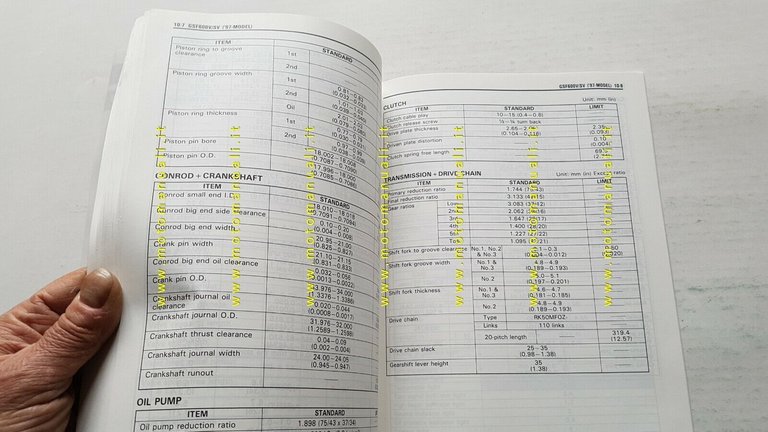 10-7 GSF600V/SV ('97-MODEL)
ITEM STANDARD
Piston ring to groove clearance 1st
2nd
Piston ring groove width 1st
2nd
Oil
Piston ring thickness 1st
2nd
Piston pin bore 18.002-18.008
Piston pin O.D. 17.996-18.000
CONROD + CRANKSHAFT
ITEM STANDARD
Conrod small end I.D. 18.010-18.018
Conrod big end side clearance 0.10-0.20
(0.004-0.008)
Conrod big end width 20.95-21.00
(0.825-0.827)
Crank pin width 21.10-21.15
(0.831-0.833)
Conrod big end oil clearance 0.032-0.056
Crank pin O.D. 33.976-34.000
(1.3376-1.3386)
Crankshaft journal oil clearance 0.020-0.044
(0.0008-0.0017)
Crankshaft journal O.D. 31.976-32.000
(1.2589-1.2598)
Crankshaft thrust clearance 0.04-0.09
(0.002-0.004)
Crankshaft journal width 24.00-24.05
(0.945-0.947)
Crankshaft runout
OIL PUMP
ITEM STANDARD
Oil pump reduction ratio 1.898 (75/43 x 37/34)
GSF600V/SV ('97-MODEL) 10-8
CLUTCH Unit: mm (in)
ITEM STANDARD LIMIT
Clutch cable play 10-15 (0.4-0.6)
Clutch release screw ¼-½ turn back
Drive plate thickness
Driven plate distortion 0.10
(0.004)
Clutch spring free length
TRANSMISSION + DRIVE CHAIN Unit: mm (in) Except ratio
ITEM STANDARD LIMIT
Primary reduction ratio 1.744 (75/43)
Final reduction ratio
Gear ratios Low 3.083 (37/12)
2nd
3rd
4th 1.400 (28/20)
5th 1.227 (27/22)
Top
Shift fork to groove clearance No.1, No.2 & No.3
Shift fork groove width No.1 & No.3 4.8-4.9
(0.189-0.193)
No.2 5.0-5.1
(0.197-0.201)
Shift fork thickness No.1 & No.3 4.6-4.7
(0.181-0.185)
No.2 4.8-4.9
(0.189-0.193)
Drive chain Type
Links 110 links
20-pitch length 319.4
(12.57)
Drive chain slack 25-35
(0.98-1.38)
Gearshift lever height 35
(1.38)
www.motomanuali.it
www.motomanuali.it
www.motomanuali.it
www.motomanuali.it
www.motomanuali.it
www.motomanuali.it